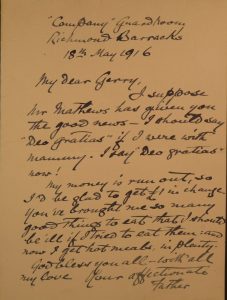 "Company" Guardroom
Richmond Barracks
18th May 1916
My dear Gerry,
I suppose
Mr Mathews has given you
the good news – I should say
"Deo gratias" if I were with
mammy. I say "Deo gratias"
now!
My money is run out, so
I'd be glad to get £1 in change.
You've brought me so many
good things to eat that I should
be ill if I tried to eat them: and
now I get hot meals in plenty.
God bless you all – with all
my love Your affectionate
Father